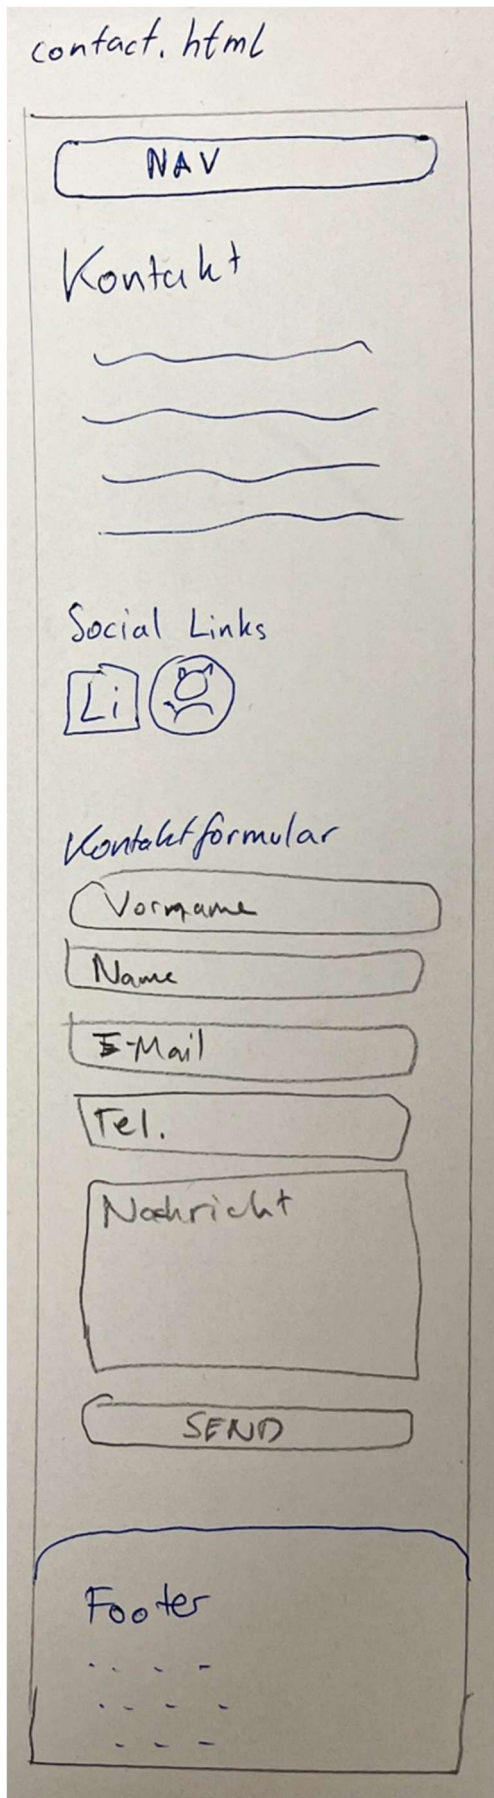 contact.html
NAV
Kontakt
Social Links
Li
Kontaktformular
Vorname
Name
E-Mail
Tel.
Nachricht
SEND
Footer